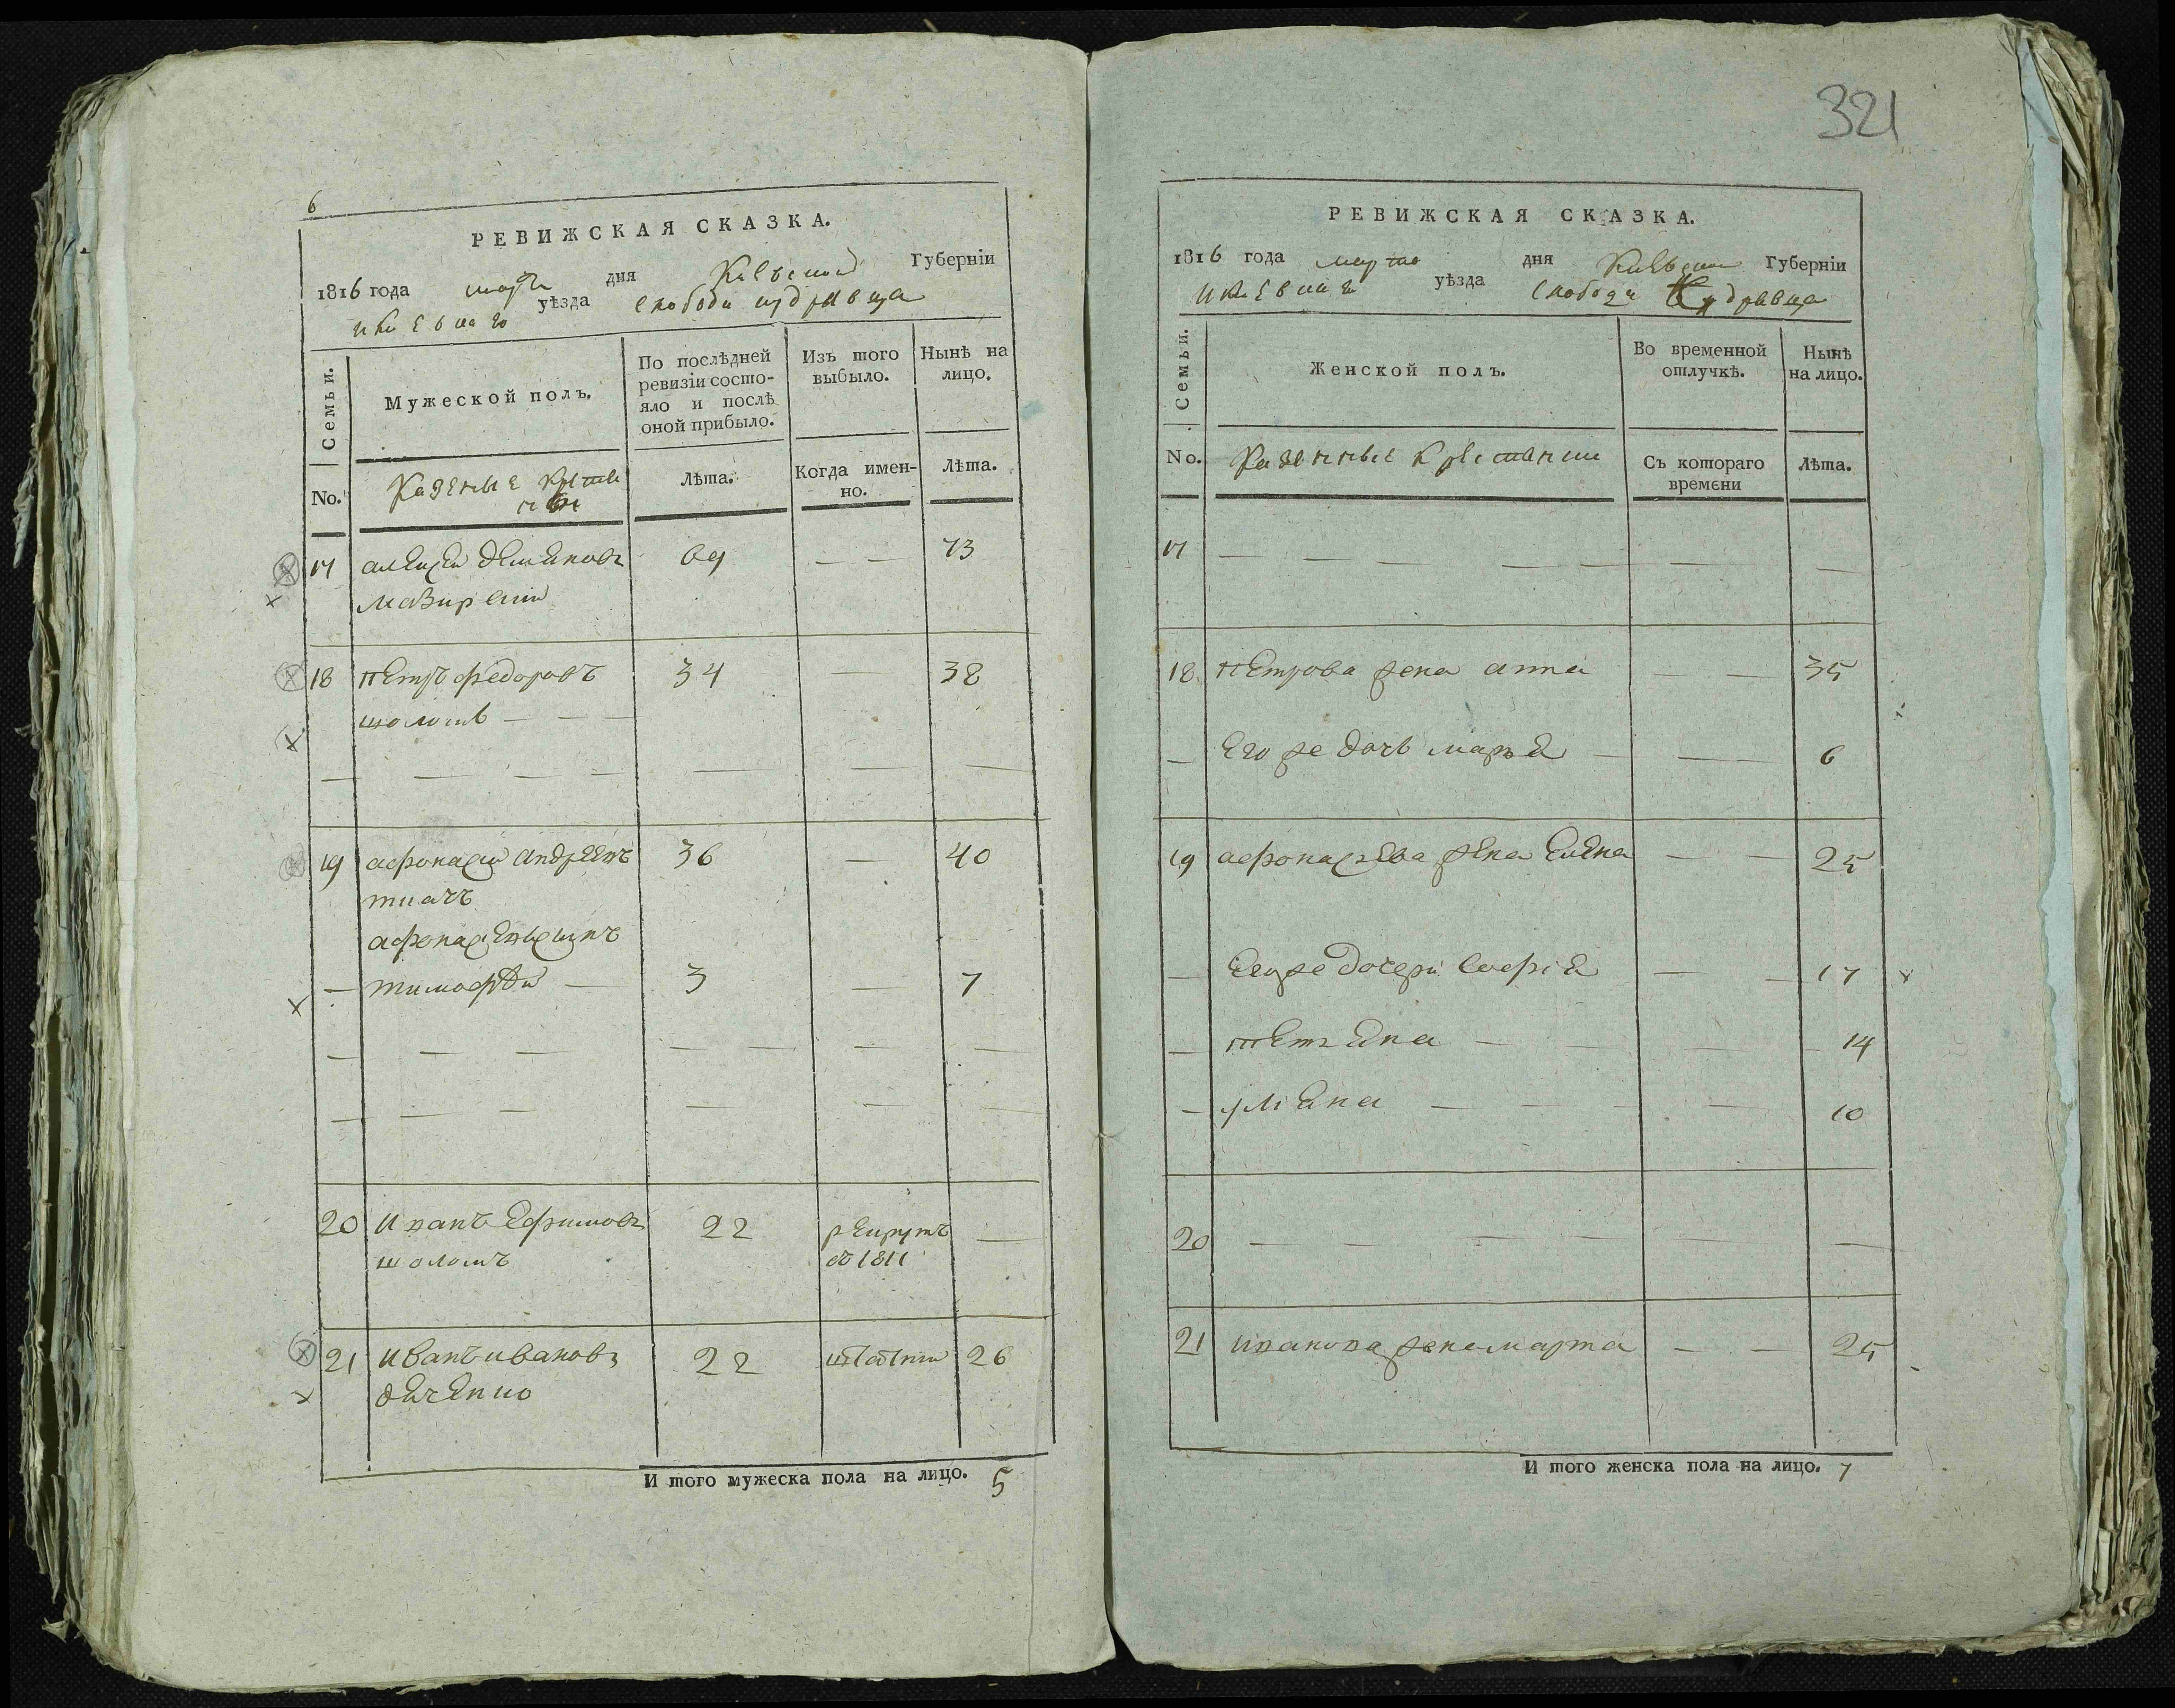 321
6
РЕВИЖСКАЯ СКАЗКА.
1816 года марта дня Киевской Губерніи
Киевскаго уѣзда слободы Кудрявца
Семьи.
Мужеской полъ.
По послѣдней ревизіи состо-
яло и послѣ
оной прибыло.
Изъ того
выбыло.
Нынѣ на
лицо.
No.
Казеные
Лѣта.
Когда имен-
но.
Лѣта.
17 алексей 69 — — 73
18 петръ федоровъ 34 — 38
шоломъ — — —
— — — — — — —
19 афонасий андреевъ 36 — 40
ткачъ
афонасиевъ сынъ
— тимофѣй — 3 — 7
— — — — — — —
— — — — —
20 Иванъ Ефимовъ 22 рекрутъ —
шоломъ въ 1811
21 иванъ ивановъ 22 26
И того мужеска пола на лицо. 5
РЕВИЖСКАЯ СКАЗКА.
1816 года марта дня Киевской Губерніи
Киевскаго уѣзда слободы Кудрявца
Семьи.
Женской полъ.
Во временной
отлучкѣ.
Нынѣ
на лицо.
No.
Казенные крестьянки
Съ котораго
времени
Лѣта.
17 — — — — — —
18 петрова жена анна — — 35
— Его же дочь марья — — 6
19 афонасьева жена Елена — — 25
— Его же дочери софія — — 17
— тетяна — — — 14
— уліяна — — — 10
20 — — — — — —
21 иванова жена марта — — 25
И того женска пола на лицо. 7